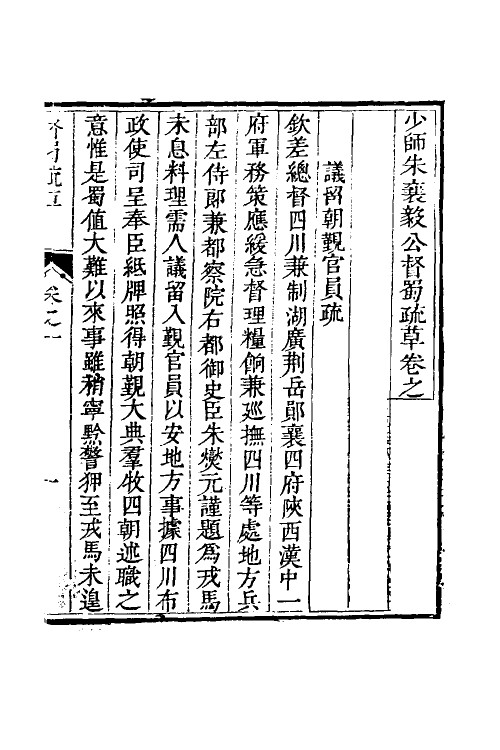 少師朱襄毅公督蜀疏草卷之
議留朝覲官員疏
欽差總督四川兼制湖廣荆岳鄖襄四府陝西漢中一
府軍務策應緩急督理糧餉兼廵撫四川等處地方兵
部左侍郎兼都察院右都御史臣朱燮元謹題爲戎馬
未息料理需人議留入覲官員以安地方事據四川布
政使司呈奉臣紙牌照得朝覲大典羣牧四朝述職之
意惟是蜀值大難以來事雖稍寧黔警狎至戎馬未遑
督蜀疏草
卷之一
一